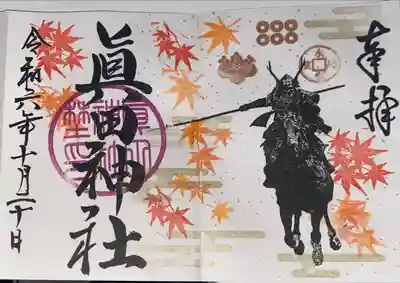 奉拝
眞田神社
令和六年十月二十日